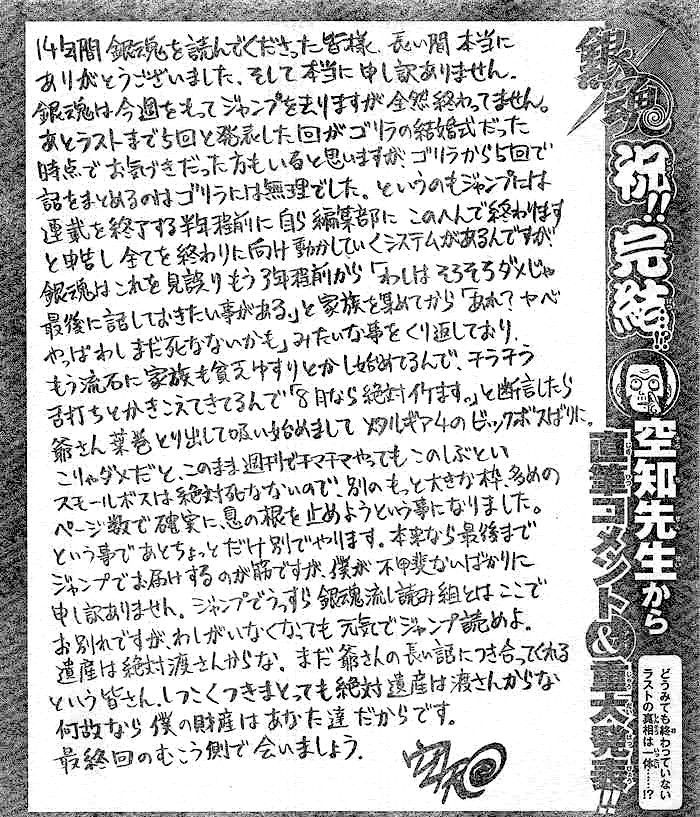 14年間銀魂を読んでくださった皆様、長い間本当に
ありがとうございました、そして本当に申し訳ありません。
銀魂は今週をもってジャンプを去りますが全然終わってません。
あとラストまで5回と発表した回がゴリラの結婚式だった
時点でお気づきだった方もいると思いますが、ゴリラから5回で
話をまとめるのはゴリラには無理でした。というのもジャンプには
連載を終了する半年程前に自ら編集部に このへんで終わります
と申告し全てを終わりに向け動かしていくシステムがあるんですが
銀魂はこれを見誤りもう3年程前から「わしはそろそろダメじゃ
最後に話しておきたい事がある。」と家族を集めてから「あれ?ヤベ
やっぱわしまだ死なないかも」みたいな事をくり返しており、
もう流石に家族も貧乏ゆすりとかし始めてるんで、チラチラ
舌打ちとかきこえてきてるんで「8月なら絶対イケます。」と断言したら
爺さん葉巻とり出して吸い始めまして メタルギア4のビックボスばりに。
こりゃダメだと、このまま週刊でチマチマやってもこのしぶとい
スモールボスは絶対死なないので、別のもっと大きな枠、多めの
ページ数で確実に、息の根を止めようという事になりました。
という事であとちょっとだけ別でやります。本来なら最後まで
ジャンプでお届けするのが筋ですが、僕が不甲斐ないばかりに
申し訳ありません。ジャンプでうっすら銀魂流し読み組とはここで
お別れですが、わしがいなくなっても元気でジャンプ読めよ。
遺産は絶対渡さんからな。まだ爺さんの長い話につき合ってくれる
という皆さん、しつこくつきまとっても絶対遺産は渡さんからな
何故なら僕の財産はあなた達だからです。
最終回のむこう側で会いましょう。
空知
銀魂
祝!!完結…!?
空知先生から
直筆コメント&重大発表!!
どうみても終わっていない
ラストの真相は一体……!?